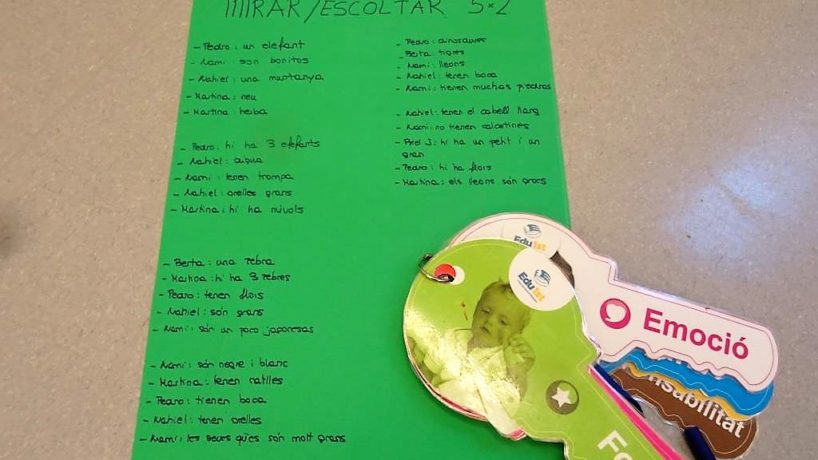 MIRAR/ESCOLTAR 5x2
- Pedro: un elefant
- Nami: són bonitos
- Nahiel: una muntanya
- Martina: neu
- Martina: herba
- Pedro: hi ha 3 elefants
- Nahiel: aigua
- Nami: tenen trompa
- Nahiel: orelles grans
- Martina: hi ha núvols
- Berta: una zebra
- Martina: hi ha 3 zebres
- Pedro: tenen flors
- Nahiel: són grans
- Nami: són un poco japonesas
- Nami: són negre i blanc
- Martina: tenen ratlles
- Pedro: tienen boca
- Nahiel: tenen orelles
- Nami: les seues són molt grans
- Pedro: dinosaures
- Berta: tigres
- Nami: lleons
- Nahiel: tenen boca
- Nami: tienen muchas piedras
- Nahiel: tenen el cabell llarg
- Nami: no tienen calcetines
- hi ha un petit i un
gran
- Pedro: hi ha flors
- Martina: els lleons són grocs
Edu1st
Edu1st
Emoció
nsabilitat
Fo